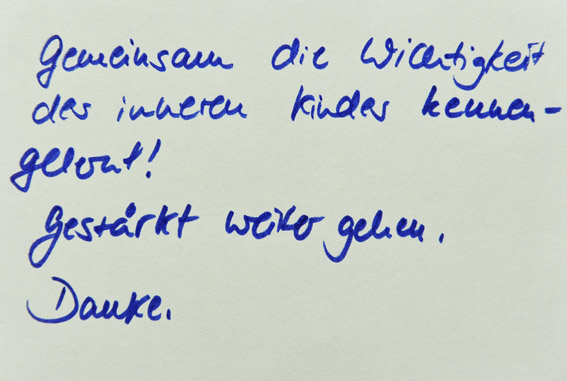 Gemeinsam die Wichtigkeit
des inneren Kindes kennen-
gelernt!
Gestärkt weiter gehen.
Danke.